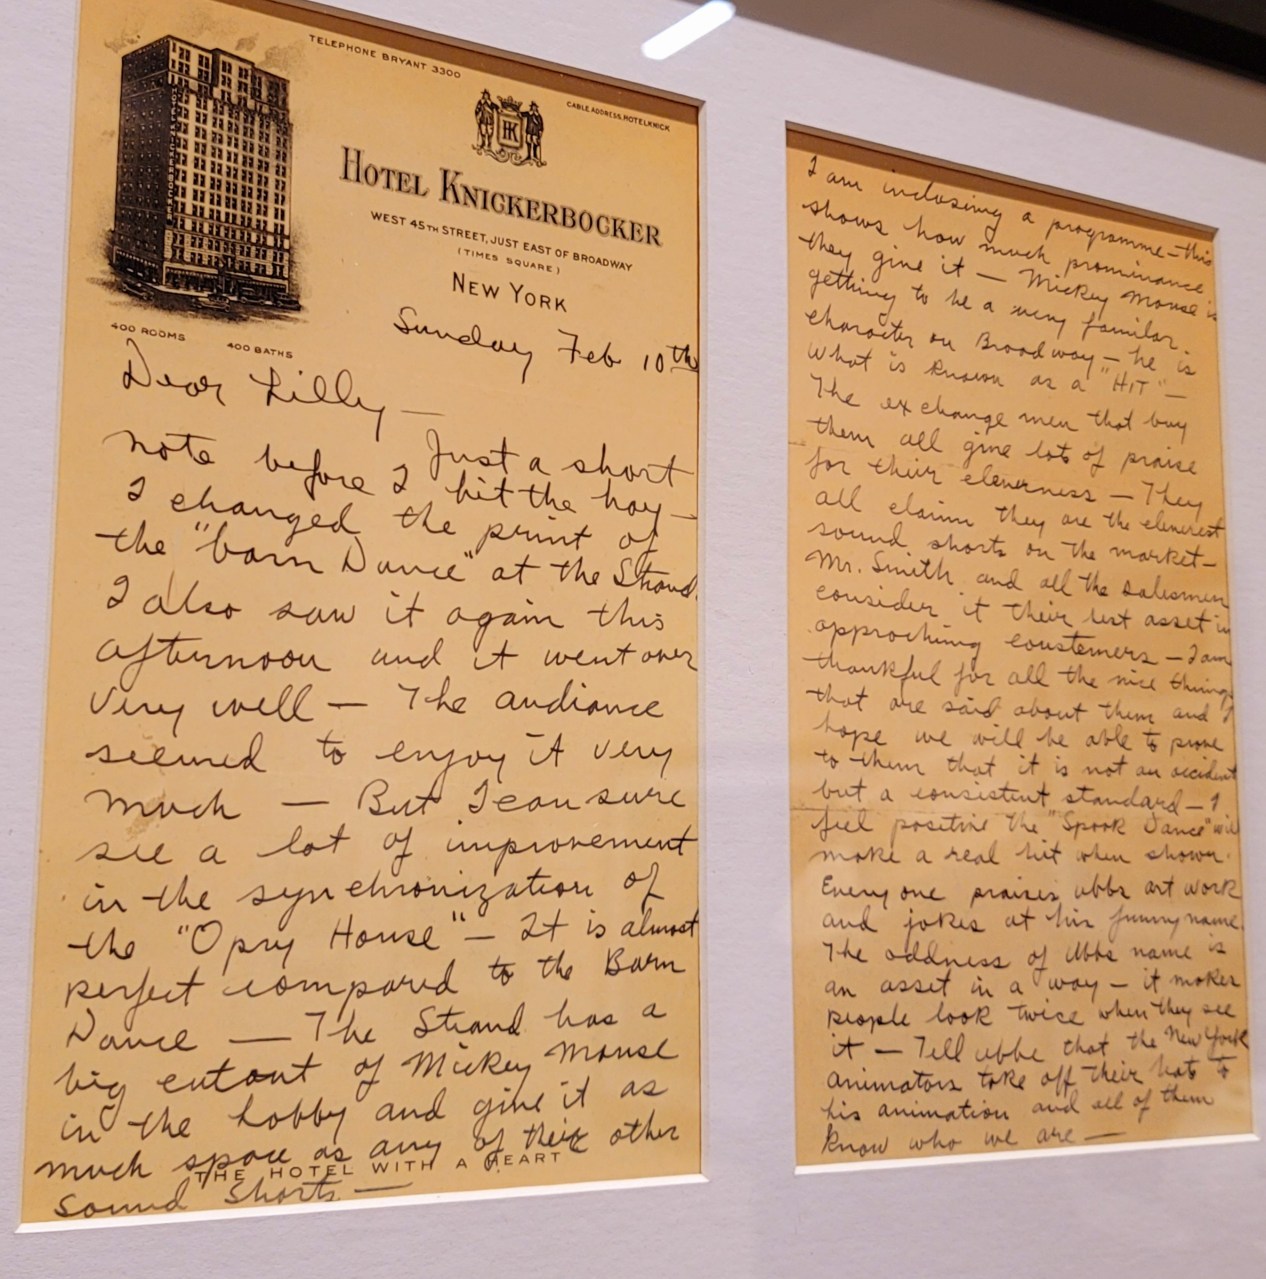 TELEPHONE BRYANT 3300
CABLE ADDRESS, HOTELKNICK
HK
HOTEL KNICKERBOCKER
WEST 45TH STREET, JUST EAST OF BROADWAY
(TIMES SQUARE)
NEW YORK
400 ROOMS 400 BATHS
Sunday Feb 10th
Dear Lilly —
Just a short
note before I hit the hay —
I changed the print of
the "barn Dance" at the Strand.
I also saw it again this
afternoon and it went over
very well — The audiance
seemed to enjoy it very
much — But I can sure
see a lot of improvement
in the synchronization of
the "Opry House" — It is almost
perfect compared to the Barn
Dance — The Strand has a
big cutout of Mickey Mouse
in the lobby and give it as
much space as any of their other
THE HOTEL WITH A HEART
sound shorts —
I am inclosing a programme — this
shows how much prominance
they give it — Mickey Mouse is
getting to be a very familar
character on Broadway — he is
what is known as a "HIT" —
The exchange men that buy
them all give lots of praise
for their cleverness — They
all claim they are the cleverest
sound shorts on the market —
Mr. Smith and all the salesmen
consider it their best asset in
approching coustemers — I am
thankful for all the nice things
that are said about them and I
hope we will be able to prove
to them that it is not an accident
but a consistent standard — I
feel positive the "Spook Dance" will
make a real hit when shown.
Every one praises ubbs art work
and jokes at his funny name.
The oddness of Ubbs name is
an asset in a way — it makes
people look twice when they see
it — Tell ubbe that the New York
animators take off their hats to
his animation and all of them
know who we are —